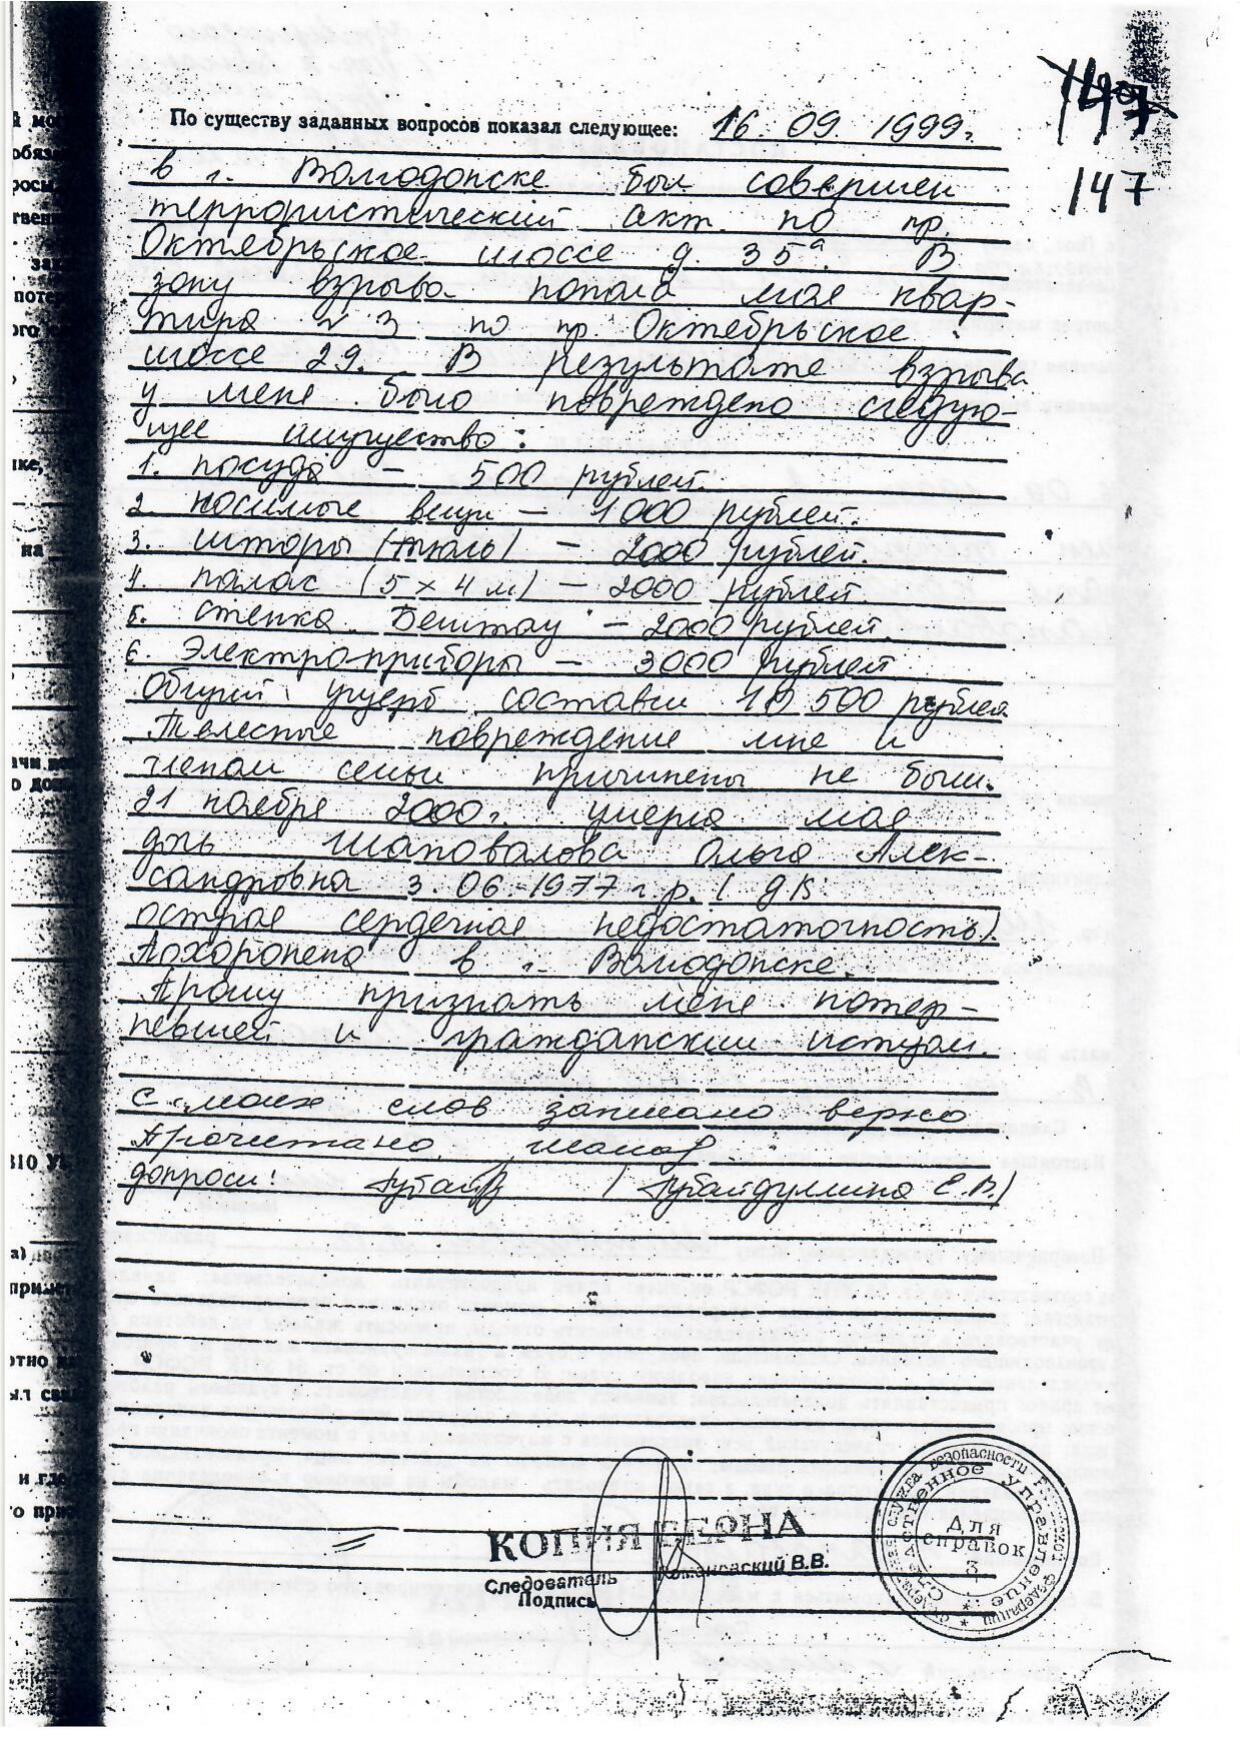 147
147
По существу заданных вопросов показал следующее: 16. 09 1999г.
в г. Волгодонске был совершен
террористический акт по пр.
Октябрьское шоссе д. 35а. В
зону взрыва попала моя квар-
тира № 3 по пр. Октябрьское
шоссе 29. В результате взрыва
у меня было повреждено следую-
щее имущество:
1. посуда — 500 рублей.
2. носимые вещи — 1000 рублей.
3. шторы (тюль) — 2000 рублей.
4. палас (5 х 4 м) — 2000 рублей.
5. стенка "Бештау" — 2000 рублей.
6. Электроприборы — 3000 рублей
Общий ущерб составил 10 500 рублей
Телесные повреждение мне и
членам семьи причинены не были.
21 ноября 2000г. умерла моя
дочь Шаповалова Ольга Алек-
сандровна 3. 06. 1977 г.р. (
острая сердечная недостаточность).
Похоронена в г. Волгодонске.
Прошу признать меня потер-
певшей и гражданским истцом.
С моих слов записано верно
Прочитано.
допросил: (Губайдуллина Е.В.)
КОПИЯ ВЕРНА
Следователь В.В.
Подпись
Федеральная служба безопасности Российской Федерации
Следственное управление
Для
справок
3